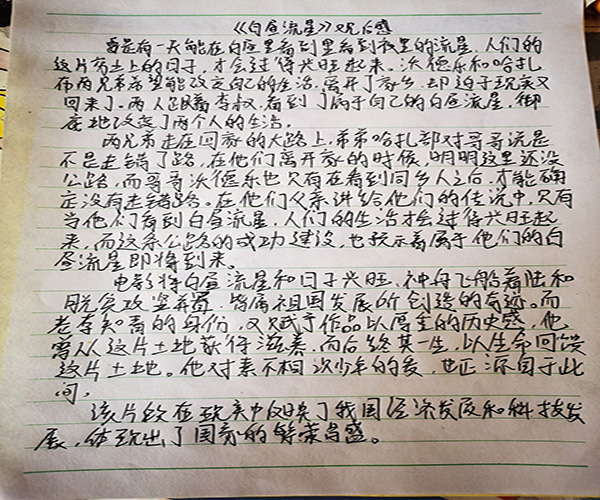 《白昼流星》观后感
要是有一天能在白昼里看到里看到夜里的流星，人们的
这片穷土上的日子，才会过得兴旺起来。沃德乐和哈扎
布两兄弟希望能改变自己的生活，离开了家乡，却迫于现实又
回来了。两人跟着李叔，看到了属于自己的白昼流星，彻
底地改变了两个人的生活。
两兄弟走在回家的大路上，弟弟哈扎部对哥哥说是
不是走错了路，在他们离开家的时候，明明这里还没
公路，而哥哥沃德乐也只有在看到同乡人之后，才能确
定没有走错路。在他们父亲讲给他们的传说中，只有
当他们看到白昼流星，人们的生活才会过得兴旺起
来，而这条公路的成功建设，也预示着属于他们的白
昼流星即将到来。
电影将白昼流星和日子兴旺，神舟飞船着陆和
脱贫攻坚并置，皆属祖国发展所创造的奇迹。而
老李知青的身份，又赋予作品以厚重的历史感，他
曾从这片土地获得滋养，而后终其一生，以生命回馈
这片土地。他对素不相识少年的爱，也正源自于此
间。
该片段在现实中反映了我国经济发展和科技发
展，体现出了国家的繁荣昌盛。